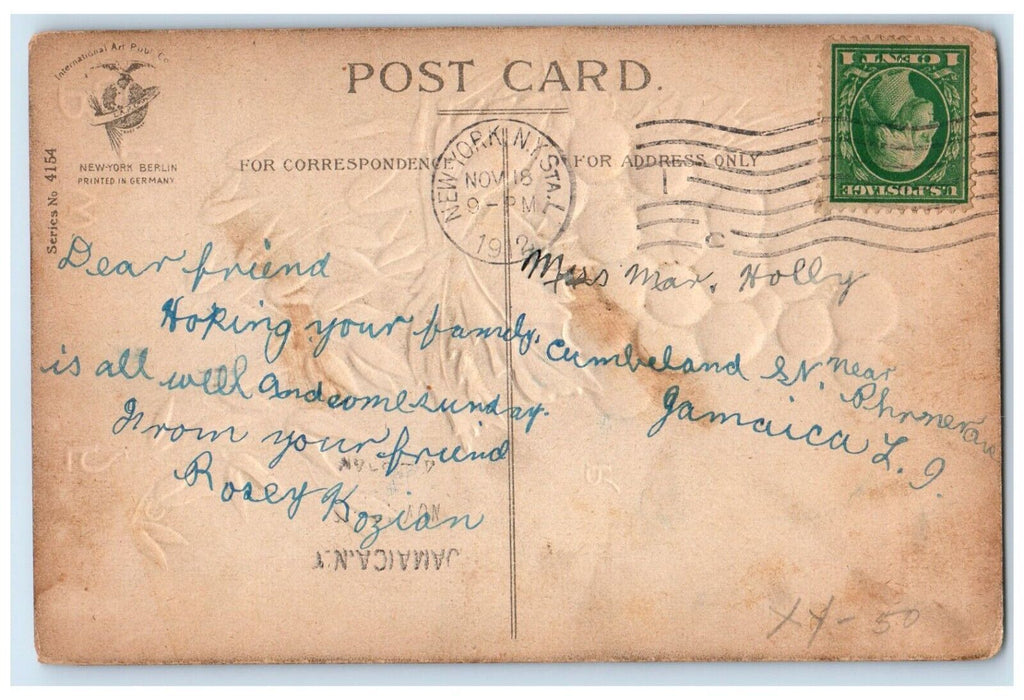 International Art Publ. Co.
NEW-YORK BERLIN
PRINTED IN GERMANY
Series No 4154
POST CARD.
FOR CORRESPONDENCE
FOR ADDRESS ONLY
NEW-YORK, N.Y. STA. L
NOV 18
9-PM
19
1 CENT 1
U.S. POSTAGE
Dear friend
Hoping your family.
is all well and come sunday.
From your friend
Rosey Kozian
Miss Mar. Holly
Cumbeland SN. near
Jamaica L. I.
NOV
JAMAICA, N.Y.
XX-50